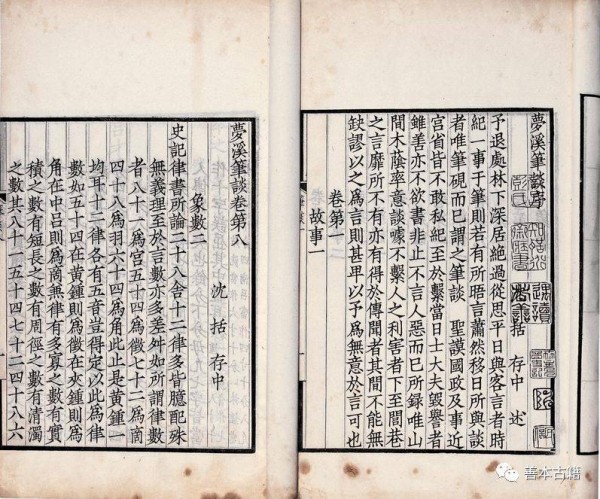 夢溪筆談序
括 存中 述
予退處林下深居絕過從思平日與客言者時
紀一事于筆則若有所晤言蕭然移日所與談
者唯筆硯而已謂之筆談 聖謨國政及事近
宮省皆不敢私紀至於繫當日士大夫毀譽者
雖善亦不欲書非止不言人惡而已所録唯山
間木蔭率意談噱不繫人之利害者下至閭巷
之言靡所不有亦有得於傳聞者其間不能無
缺謬以之爲言則甚卑以予爲無意於言可也
卷第一
故事一
夢溪筆談卷第八
沈 括 存中
象數二
史記律書所論二十八舍十二律多皆臆配殊
無義理至於言數亦多差舛如所謂律數
者八十一爲宮五十四爲徵七十二爲商
四十八爲羽六十四爲角此止是黃鍾一
均耳十二律各有五音豈得定以此爲律
數如五十四在黃鍾則爲徵在夾鍾則爲
角在中呂則爲商兼律有多寡之數有實
積之數有短長之數有周徑之數有清濁
之數其八十一五十四七十二四十八六
善本古籍